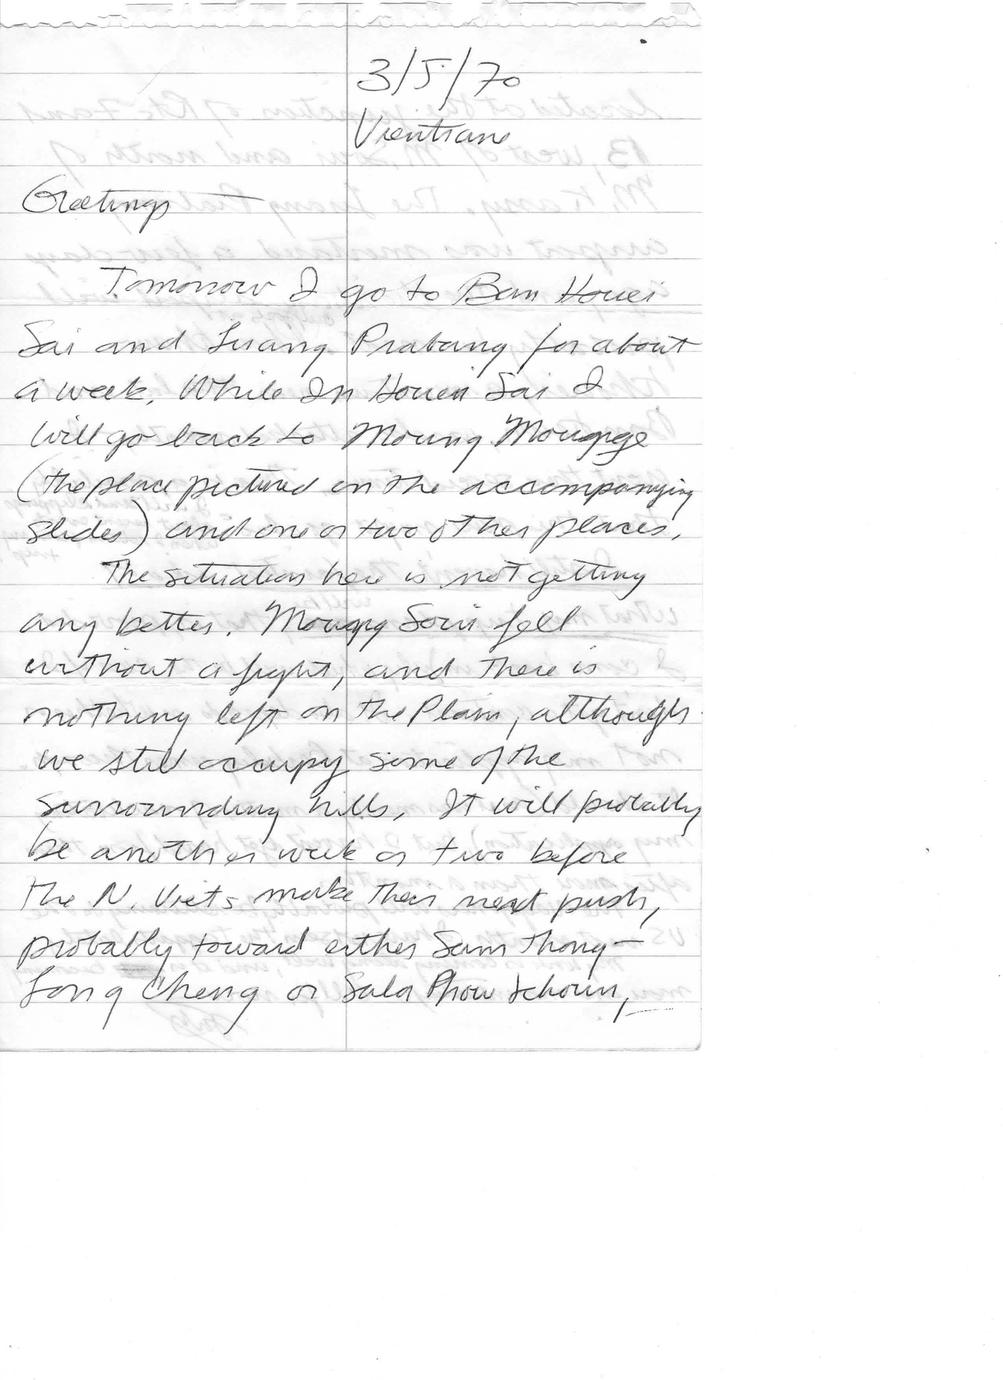 3/5/70
Vientiane
Greetings
Tomorrow I go to Ban Houei
Sai and Luang Prabang for about
a week. While In Houei Sai I
will go back to Moung Moungge
(the place pictured in the accompanying
slides) and one or two other places.
The situation here is not getting
any better. Moung Soui fell
without a fight, and there is
nothing left on the Plain, although
we still occupy some of the
surrounding hills. It will probably
be another week or two before
the N. Viets make their next push,
probably toward either Sam Thong—
Long Cheng or Sala Phou Khoun,